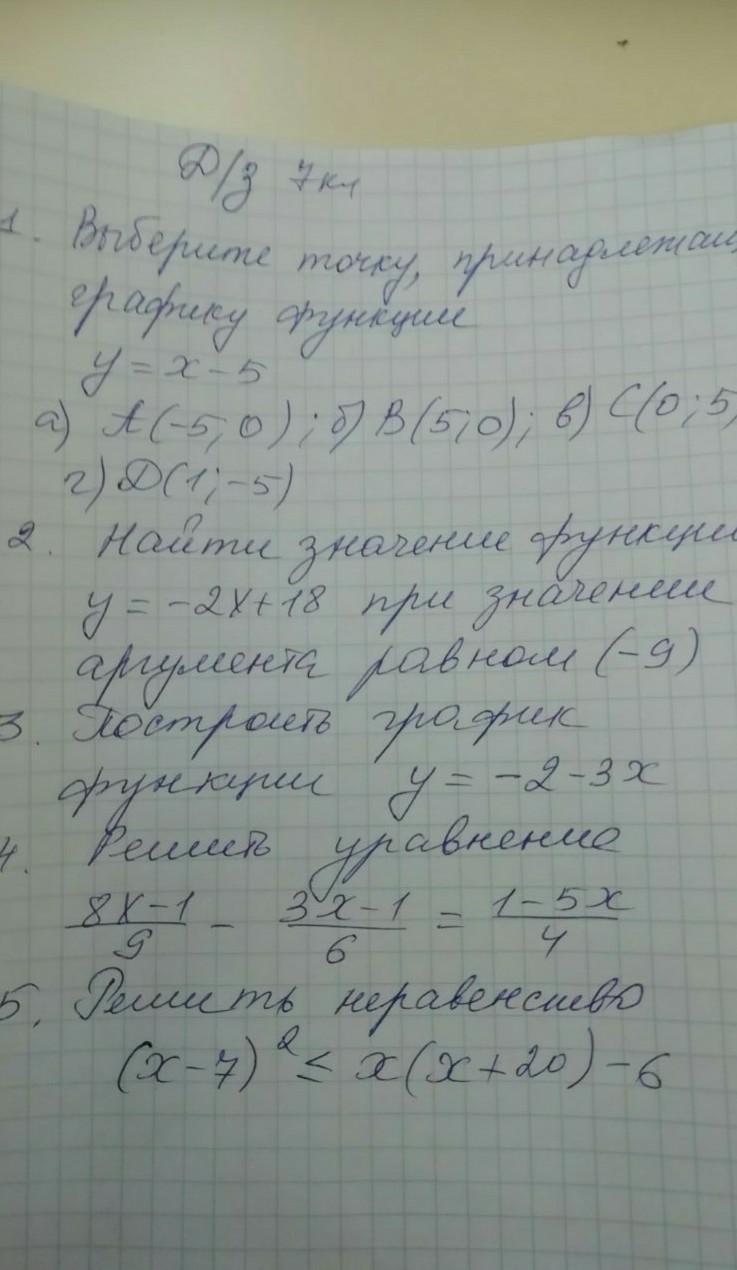 Д/з 7 кл
1. Выберите точку, принадлежащ
графику функции
y = x - 5
а) A(-5; 0); б) B(5; 0); в) C(0; 5)
г) Д(1; -5)
2. Найти значение функции
y = -2x + 18 при значении
аргумента равном (-9)
3. Построить график
функции y = -2 - 3x
4. Решить уравнение
\frac{8x-1}{9} - \frac{3x-1}{6} = \frac{1-5x}{4}
5. Решить неравенство
(x-7)² ≤ x(x+20) - 6